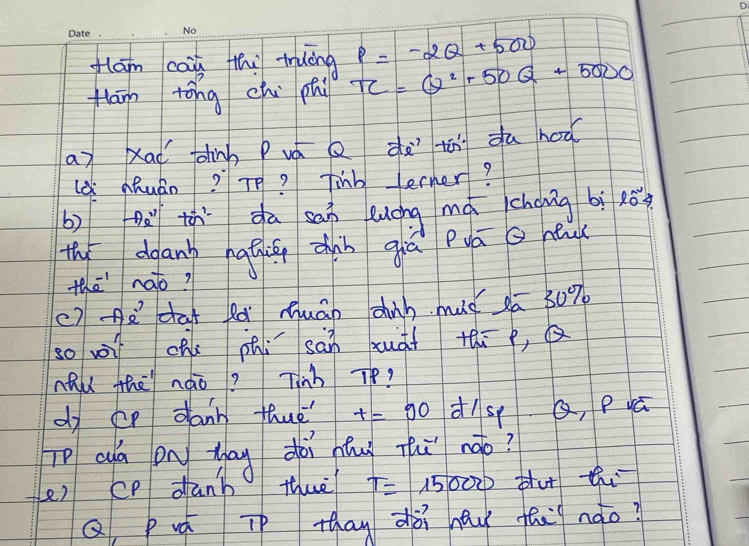 Date No
Hàm cầu thị trường P = -2Q + 500
Hàm tổng chi phí TC = Q² + 50Q + 5000
a) Xác định P và Q để tối đa hoá
lợi nhuận ? TP ? Tính Lerner ?
b) Để tối đa sản lượng mà không bị lỗ
thì doanh nghiệp định giá P và Q như
thế nào ?
c) Để đạt lợi nhuận định mức là 30%
so với chi phí sản xuất thì P, Q
như thế nào ? Tính TP?
d) CP đánh thuế t = 90 đ/sp. Q, P và
TP của DN thay đổi như thế nào ?
e) CP đánh thuế T = 15000 đvt thì
Q, P và TP thay đổi như thế nào ?